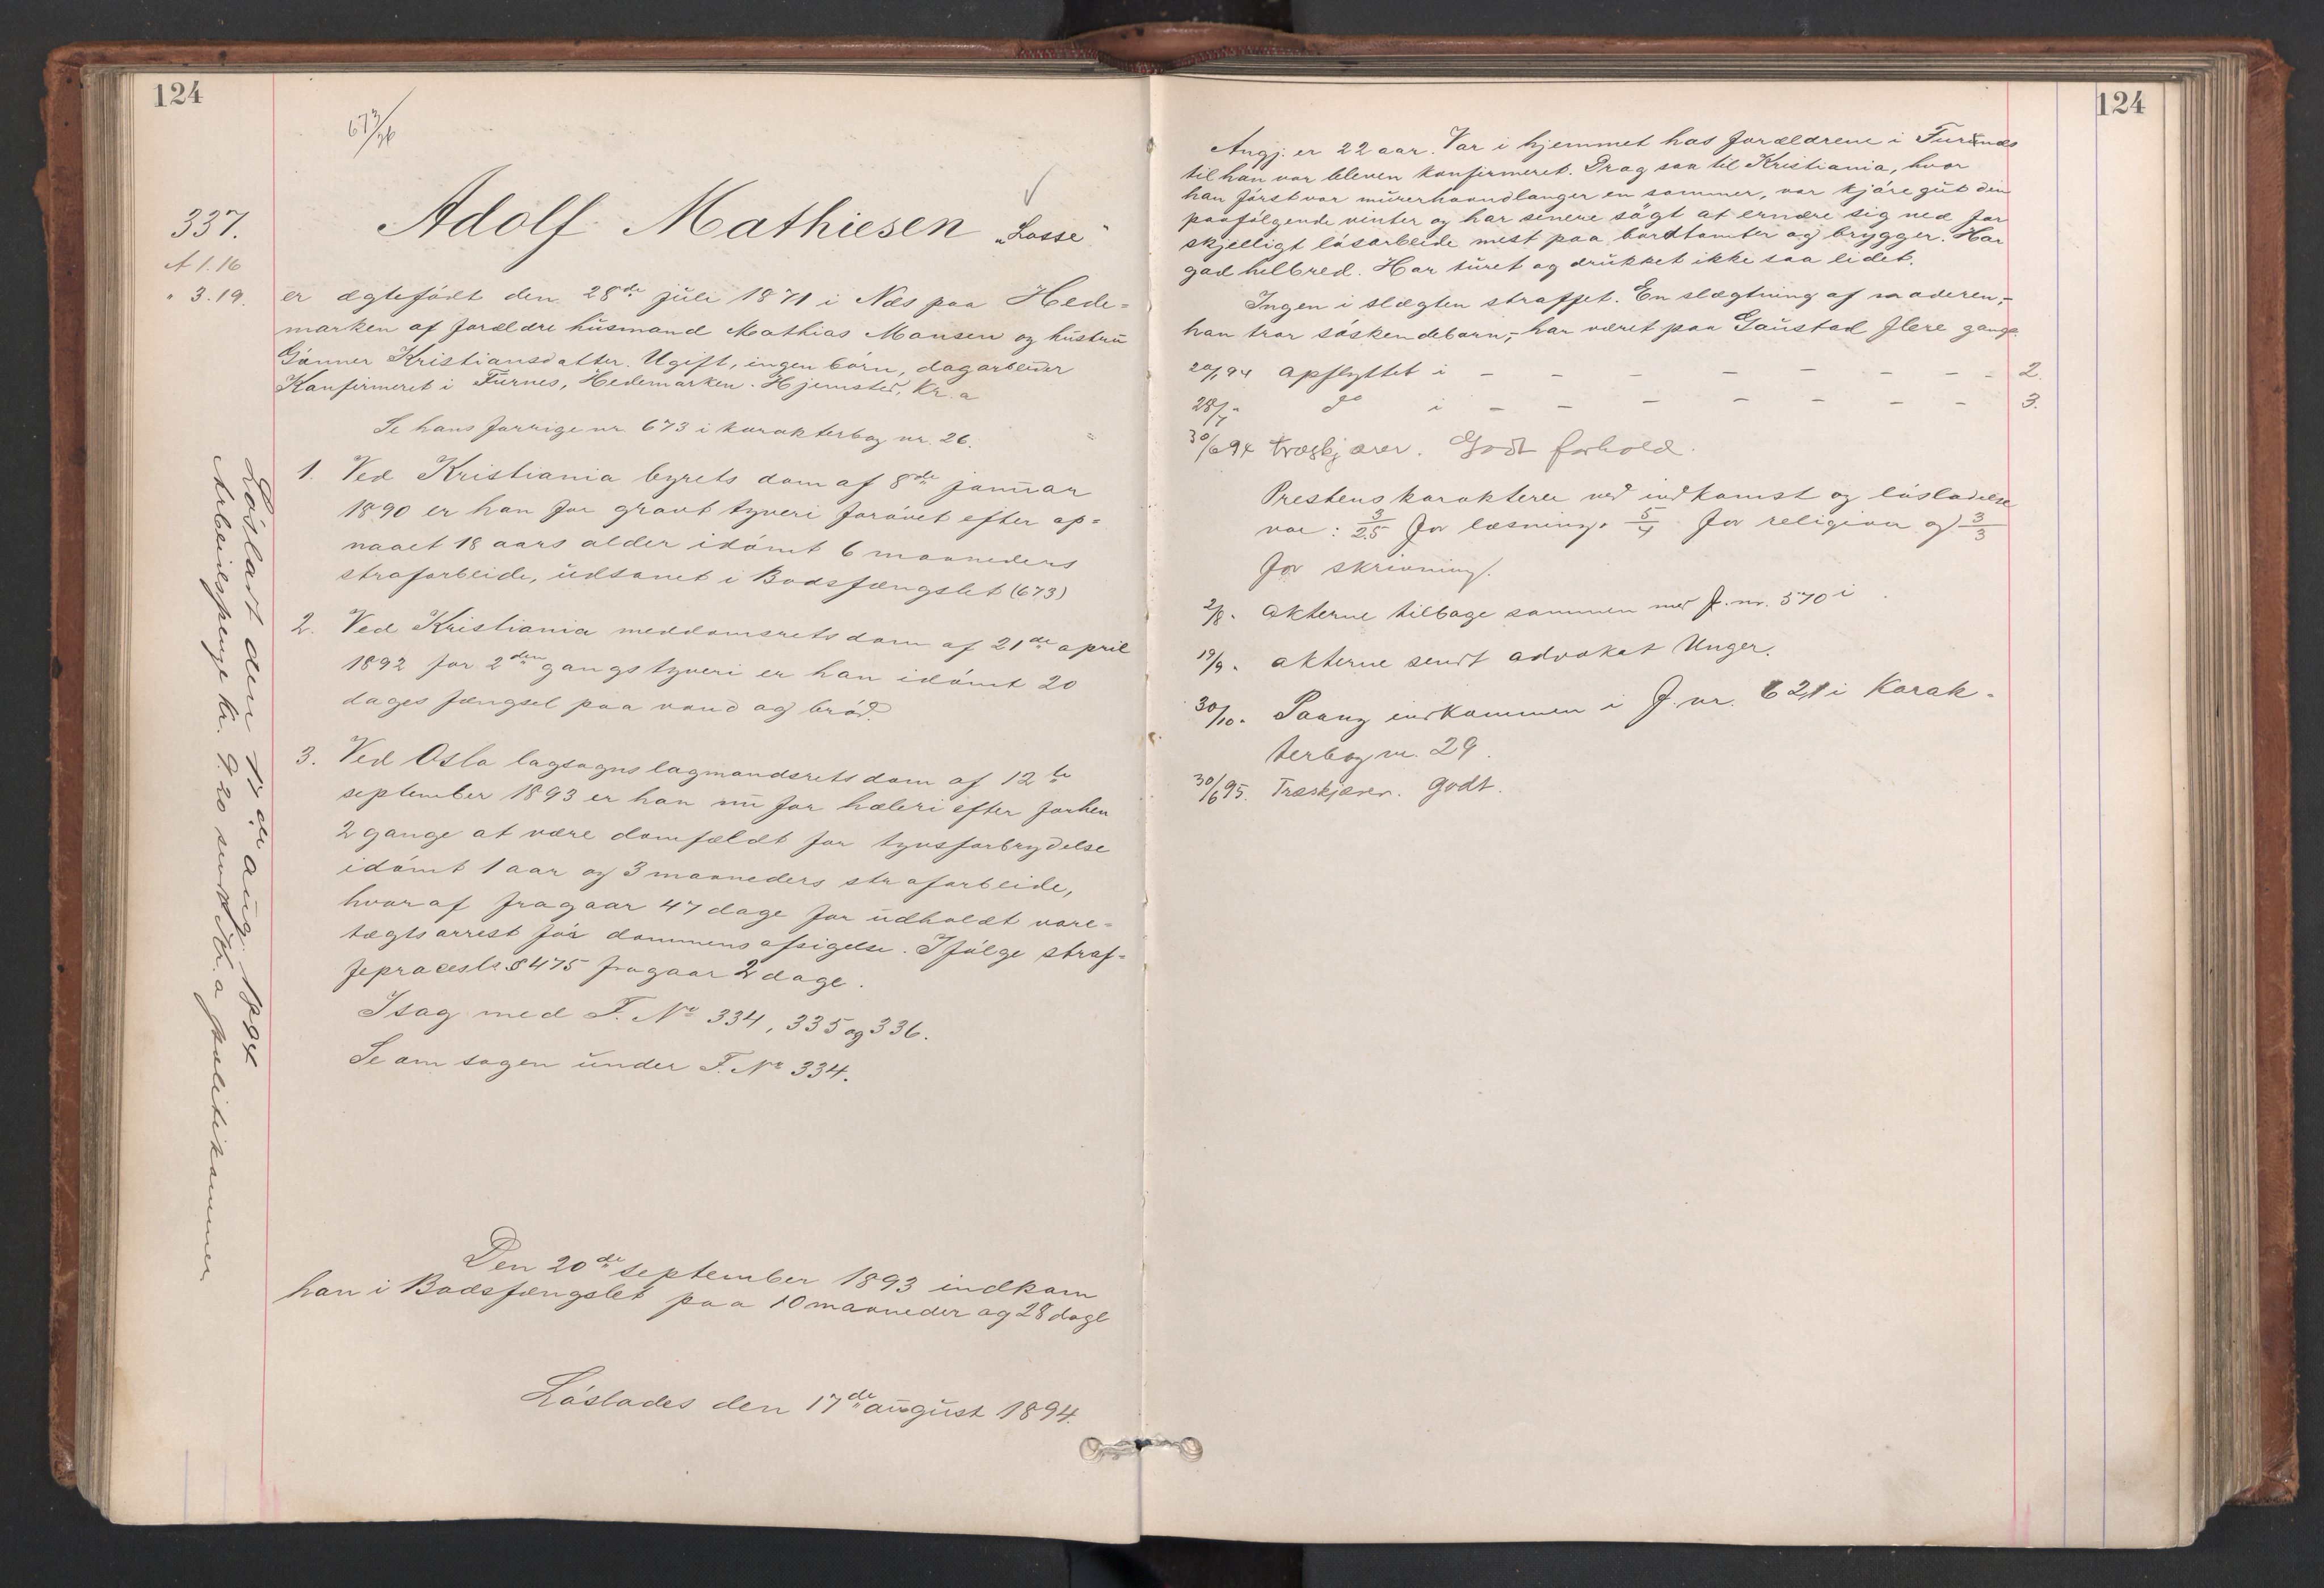 124
673/26
337.
A 1.16
" 3.19.
Adolf Mathiesen „Lasse"
er ægtefödt den 28de juli 1871 i Næs paa Hede=
marken af forældre husmand Mathias Monsen og hustru
Gönner Kristiansdatter. Ugift, ingen börn, dagarbeider
Konfirmeret i Furnes, Hedemarken. Hjemsted, Kr.a
Se hans forrige nr. 673 i karakterbog nr. 26.
1. Ved Kristiania byrets dom af 8de januar
1890 er han for grovt tyveri forövet efter op=
naaet 18 aars alder idömt 6 maaneders
strafarbeide, udsonet i Bodsfængslet (673)
2. Ved Kristiania meddomsrets dom af 21de april
1892 for 2den gangs tyveri er han idömt 20
dages fængsel paa vand og bröd.
3. Ved Oslo lagsogns lagmandsrets dom af 12te
september 1893 er han nu for hæleri efter forhen
2 gange at være domfældt for tyvsforbrydelse
idömt 1 aar og 3 maaneders strafarbeide,
hvoraf fragaar 47 dage for udholdt vare=
tægtsarrest för dommens afsigelse. Ifölge straf=
feprocesls § 475 fragaar 2 dage.
I sag med F. No 334, 335 og 336.
Se om sagen under F. No 334.
Den 20de september 1893 indkom
han i Bodsfængslet paa 10 maaneder og 28 dage
Löslades den 17de august 1894.
Lösladt den 17de aug. 1894
Arbeidspenge kr. 9.20 sendt Kr.a politikammer
124
Angj. er 22 aar. Var i hjemmet hos forældrene i Furnæs
til han var bleven konfirmeret. Drog saa til Kristiania, hvor
han först var murerhaandlanger en sommer, var kjöregut den
paafölgende vinter og har senere sögt at ernære sig ved for
skjelligt lösarbeide mest paa bordtomter og brygger. Har
god helbred. Har turet og drukket ikke saa lidet.
Ingen i slægten straffet. En slægtning af moderen,-
han tror söskendebarn,- har været paa Gaustad flere gange.
20/1 94 opflyttet i - - - - - - - - 2.
28/7 " do i - - - - - - - - 3.
30/6 94 træskjærer. Godt forhold.
Prestens karakterer ved indkomst og lösladelse
var: 3/2.5 for læsning, 5/4 for religion og 3/3
for skrivning.
2/8 " Akterne tilbage sammen med F. nr. 570 i
19/9 " akterne sendt advokat Unger.
30/10 " Paany indkommen i F. nr. 621 i Karak-
terbog nr. 29.
30/6 95. Træskjærer. Godt.